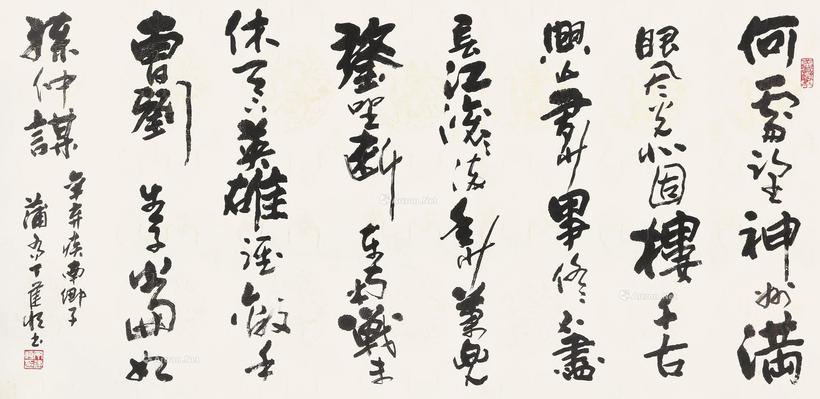 何處望神州滿
眼風光北固樓千古
興亡多少事悠悠不盡
長江滾滾流年少萬兜
鍪坐斷東南戰未
休天下英雄誰敵手
曹劉生子當如
孫仲謀
辛弃疾南鄉子
蒲丁书
Artron.Net